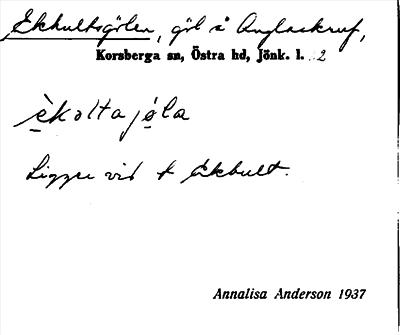 Ekhultsgölen, göl å Anglaskruf,
Korsberga sn, Östra hd, Jönk. l. 2
èkoltajøla
Ligger vid t Ekhult.
Annalisa Anderson 1937